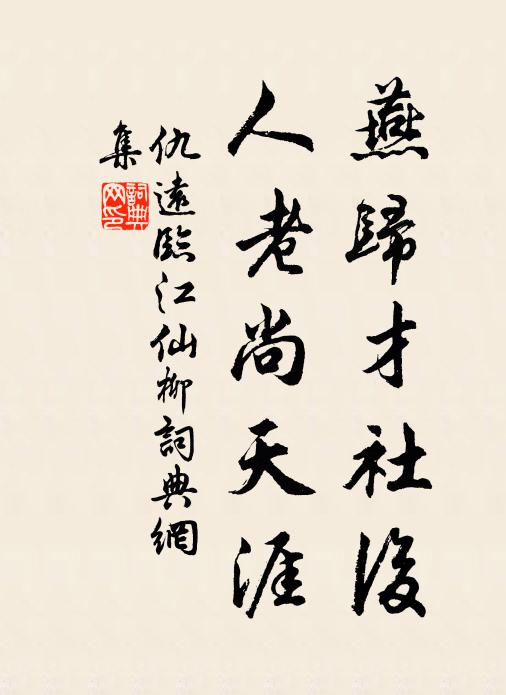 燕歸才社後
人老尚天涯
仇遠臨江仙柳詞典網
集
詞典網印